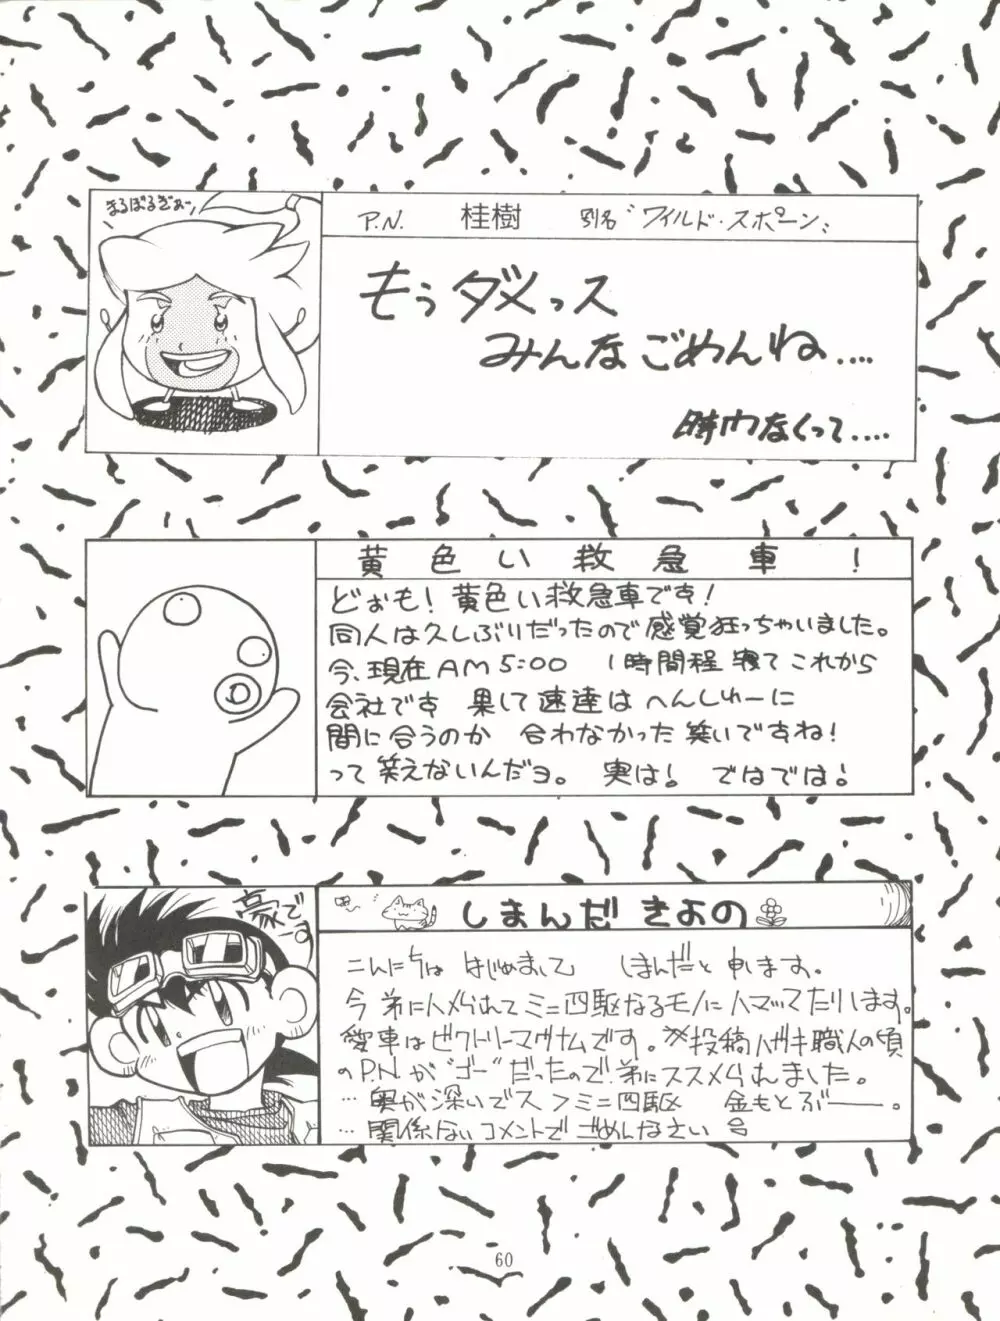 まるぼるぎぁー
P.N. 桂樹 別名“ワイルド・スポーン”
もうダメっス
みんなごめんね....
時間なくって....
黄色い救急車！
どぉも！黄色い救急車です！
同人は久しぶりだったので感覚狂っちゃいました。
今、現在AM5:00 1時間程寝てこれから
会社です 果して速達はへんしゅーに
間に合うのか 合わなかった笑いですね！
って笑えないんだヨ。 実は！ ではでは！
豪です
しまんだきよの
こんにちは はじめまして しまんだと申します。
今弟にハメられてミニ四駆なるモノにハマッてたりします。
愛車はビクトリーマグナムです。※投稿ハガキ職人の頃
のP.N.が“ゴー”だったので弟にススメられました。
…奥が深いでスフミニ四駆 金もとぶ――。
…関係ないコメントでごめんなさい
60